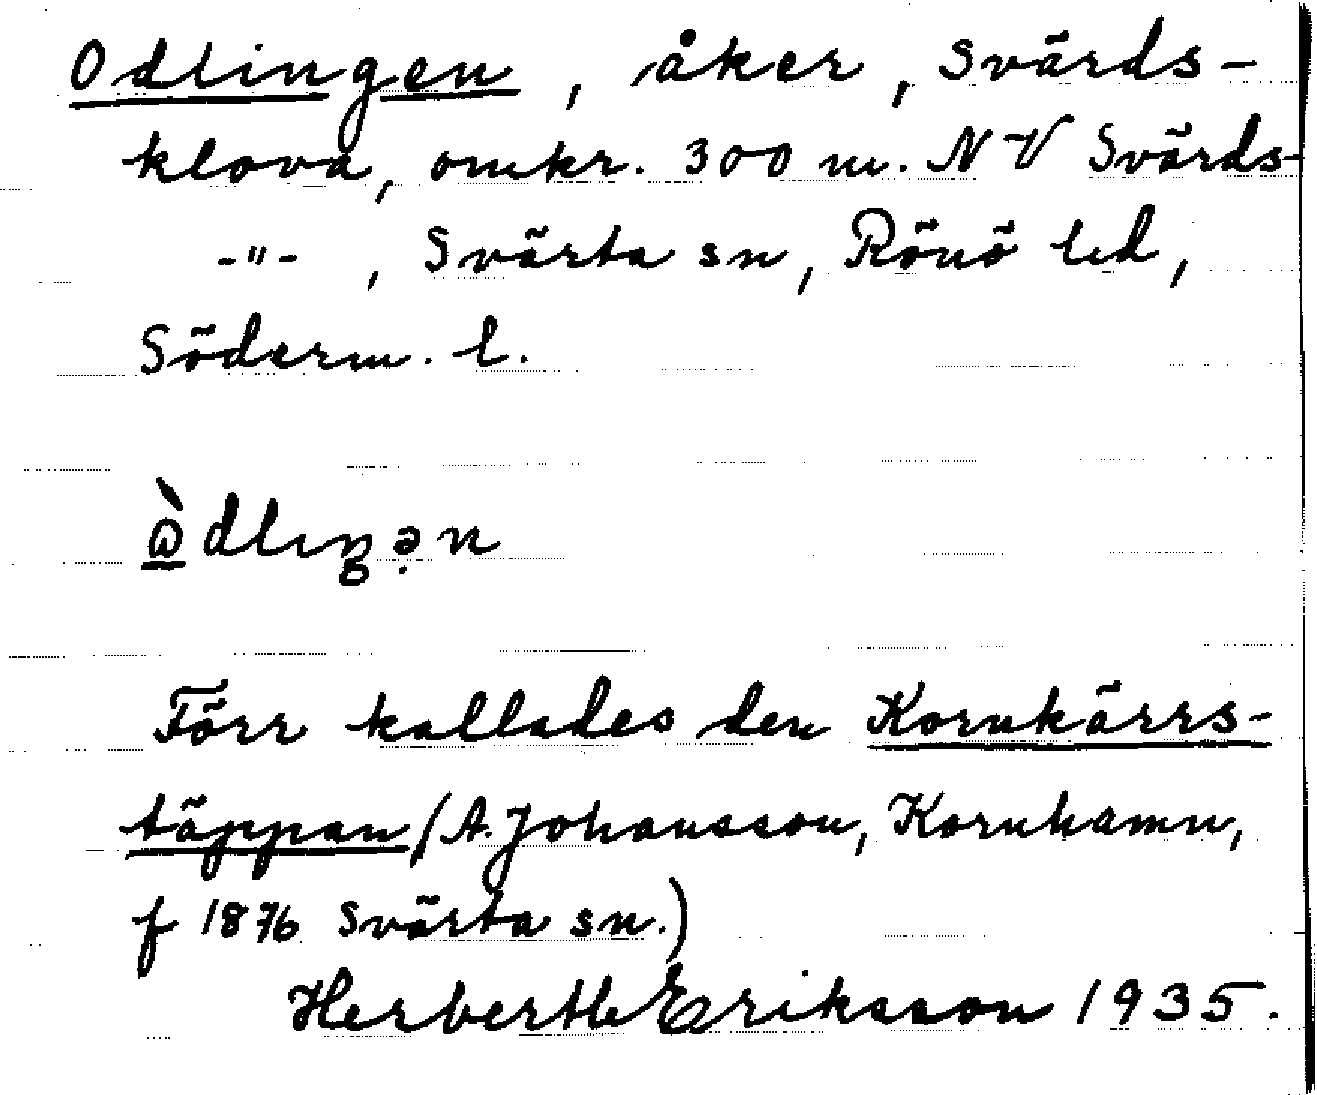 Odlingen, åker, Svärds-
klova, omkr. 300 m. NV Svärds-
-"-, Svärta sn, Rönö hd,
Söderm. l.
ὼ̲dlıŋə̣n
Förr kallades den Kornkärrs-
täppan (A. Johansson, Kornhamn,
f 1876 Svärta sn.)
Herberth Eriksson 1935.